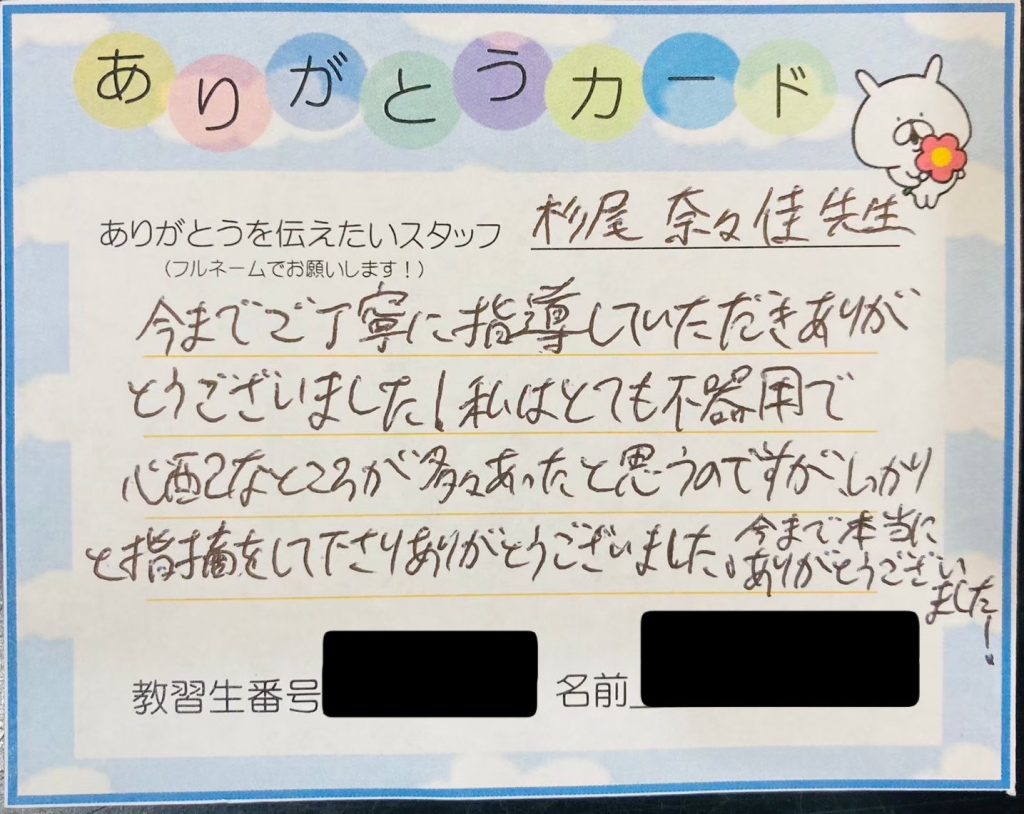 ありがとうカード
ありがとうを伝えたいスタッフ 杉尾 奈々佳 先生
(フルネームでお願いします!)
今までご丁寧に指導していただきありが
とうございました!私はとても不器用で
心配なところが多々あったと思うのですが、しっかり
と指摘をして下さりありがとうございました。
今まで本当に
ありがとうござい
ました!
教習生番号
名前